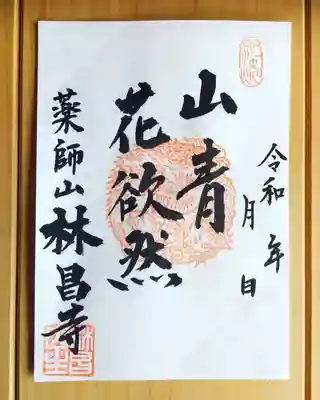 令和 年 月 日
山青
花欲然
薬師山林昌寺